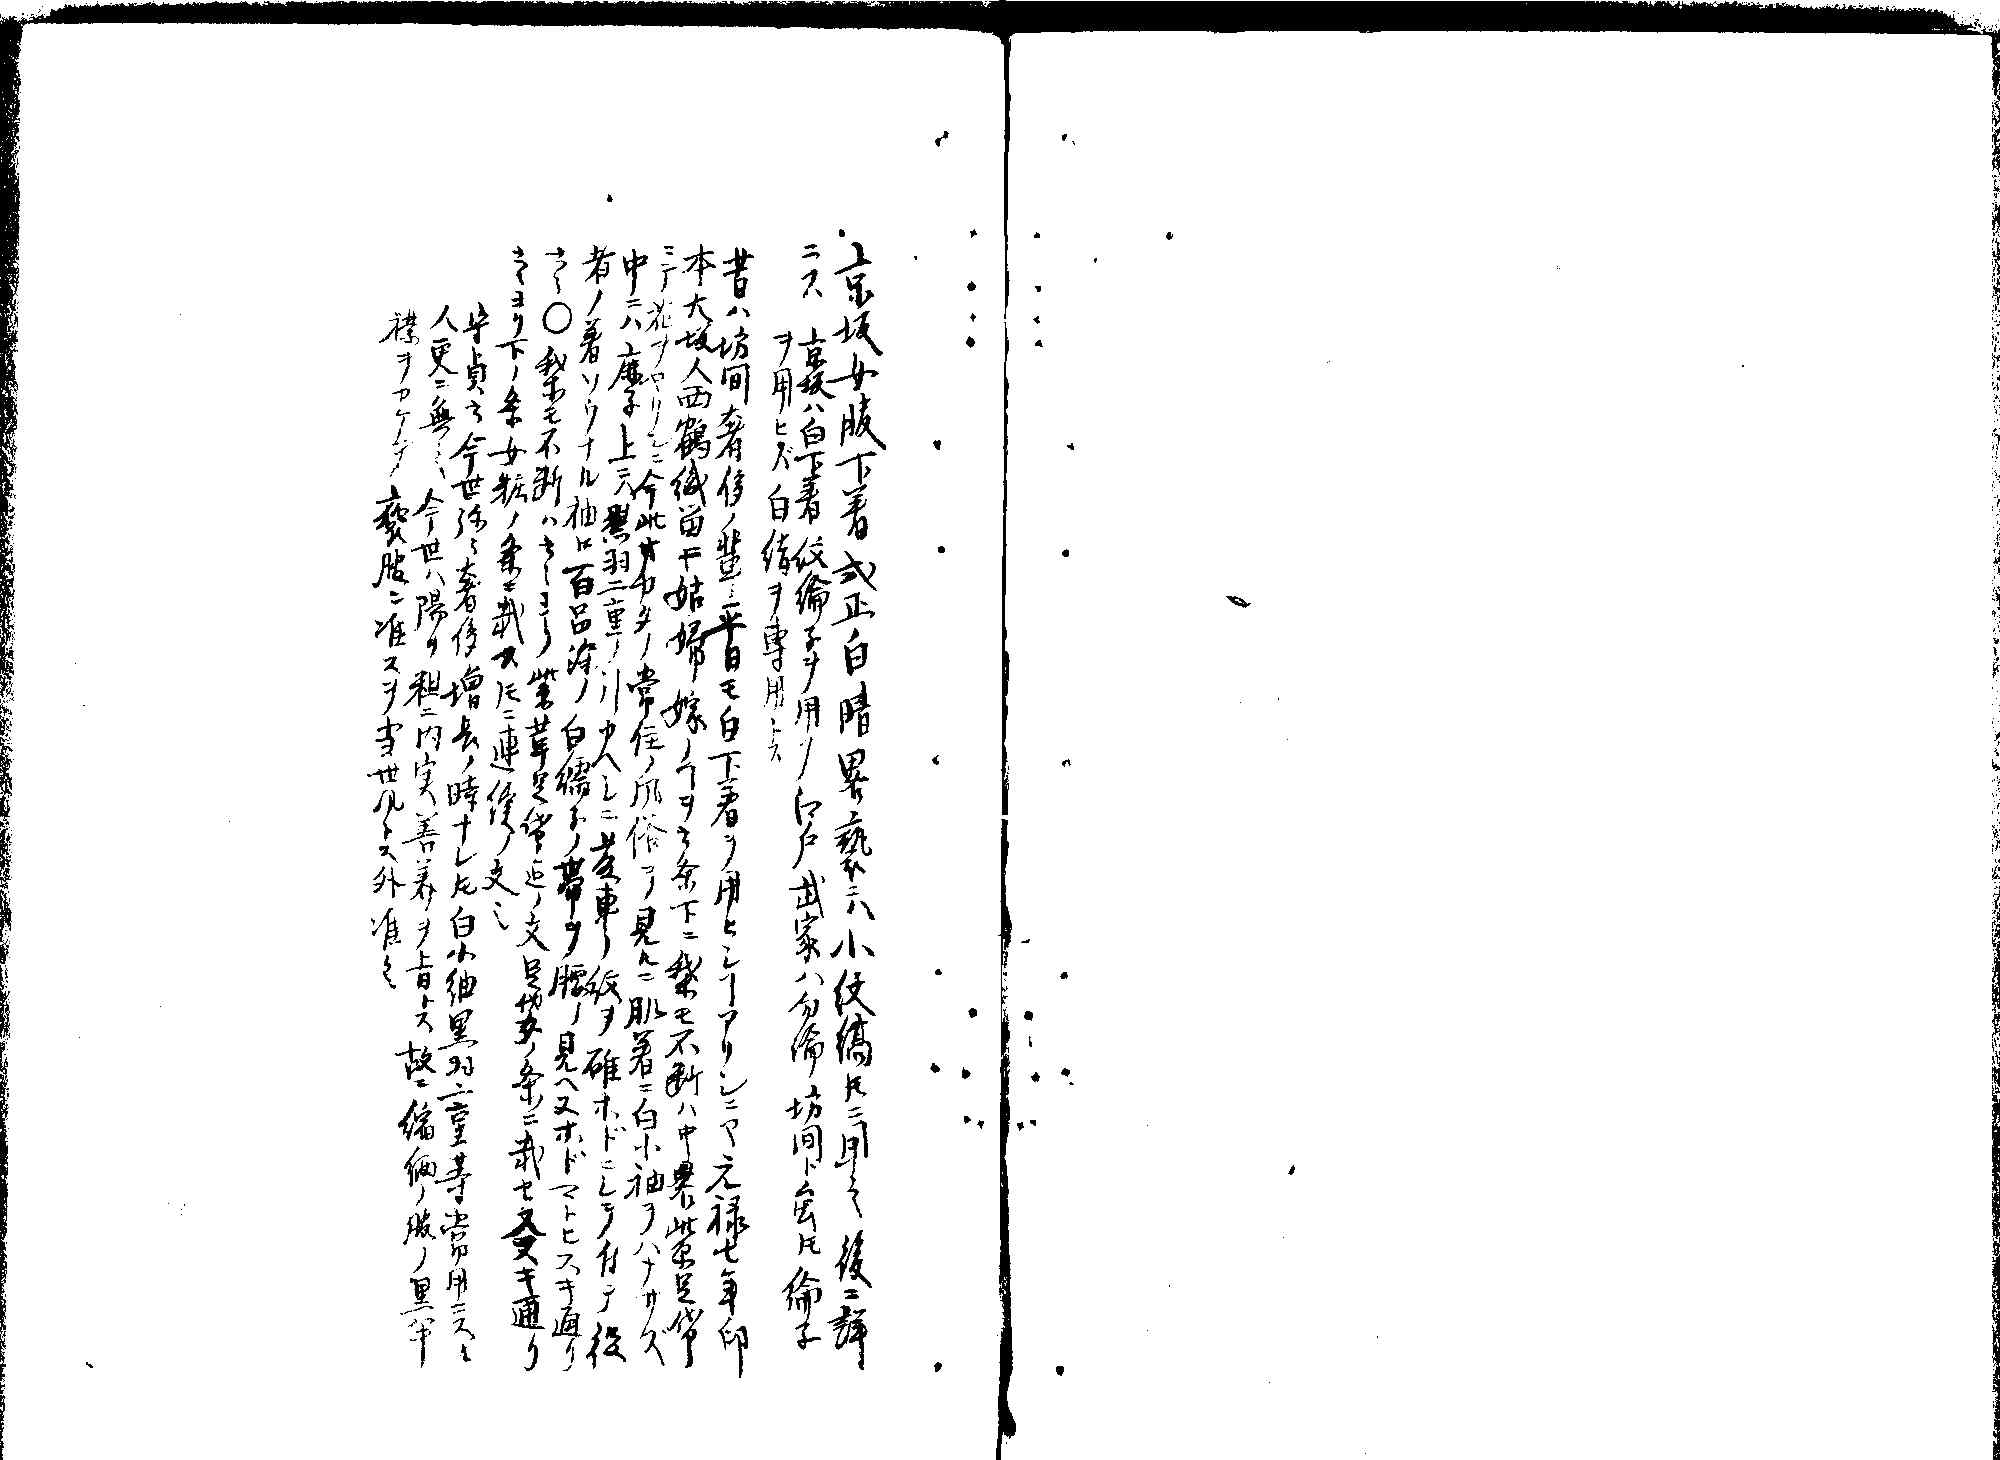 京坂女服下着式正白晴畧褻ニハ小紋縞トモニ用之後ニ詳
ニス
京坂ハ白下着紋綸子ヲ用フ江戸武家ハ勿論坊間ト虽トモ綸子
ヲ用ヒズ白絹ヲ専用トス
昔ハ坊間奢侈ノ輩ハ平日モ白下着ヲ用ヒシコアリシニヤ元禄七年印
本大坂人西鶴織留ニ姑婦嫁ノ ヲ云条下ニ梨モ不断ハ中畧紫足袋
ニテ花ヲヤリシニ今此 カタノ常住ノ風俗ヲ見ルニ肌着ニ白小袖ヲハナサズ
中ニハ鹿子上ニハ黒羽二重ノ引カヘシニ菱車ノ紋ヲ碓ホドニシテ付テ役
者ノ着ソウナル袖口百品染ノ白繻子ノ帯ヲ腰ノ見ヘヌホドマトヒスキ通リ
云々〇梨モ不断ハ云々ヨリ紫革足袋迄ノ文足袋ノ条ニ載セ又スキ通リ
云々ヨリ下ノ条女粧ノ条ニ載ストモニ連続ノ文也
守貞云今世弥々奢侈増長ノ時ナレトモ白小袖黒羽二重等常用ニスル
人更ニ無之今世ハ陽ヲ粗ニ内実善美ヲ旨トス故ニ縮緬ノ服ノ黒半
襟ヲカケテ褻服ニ准スヲ当世風トス外准之